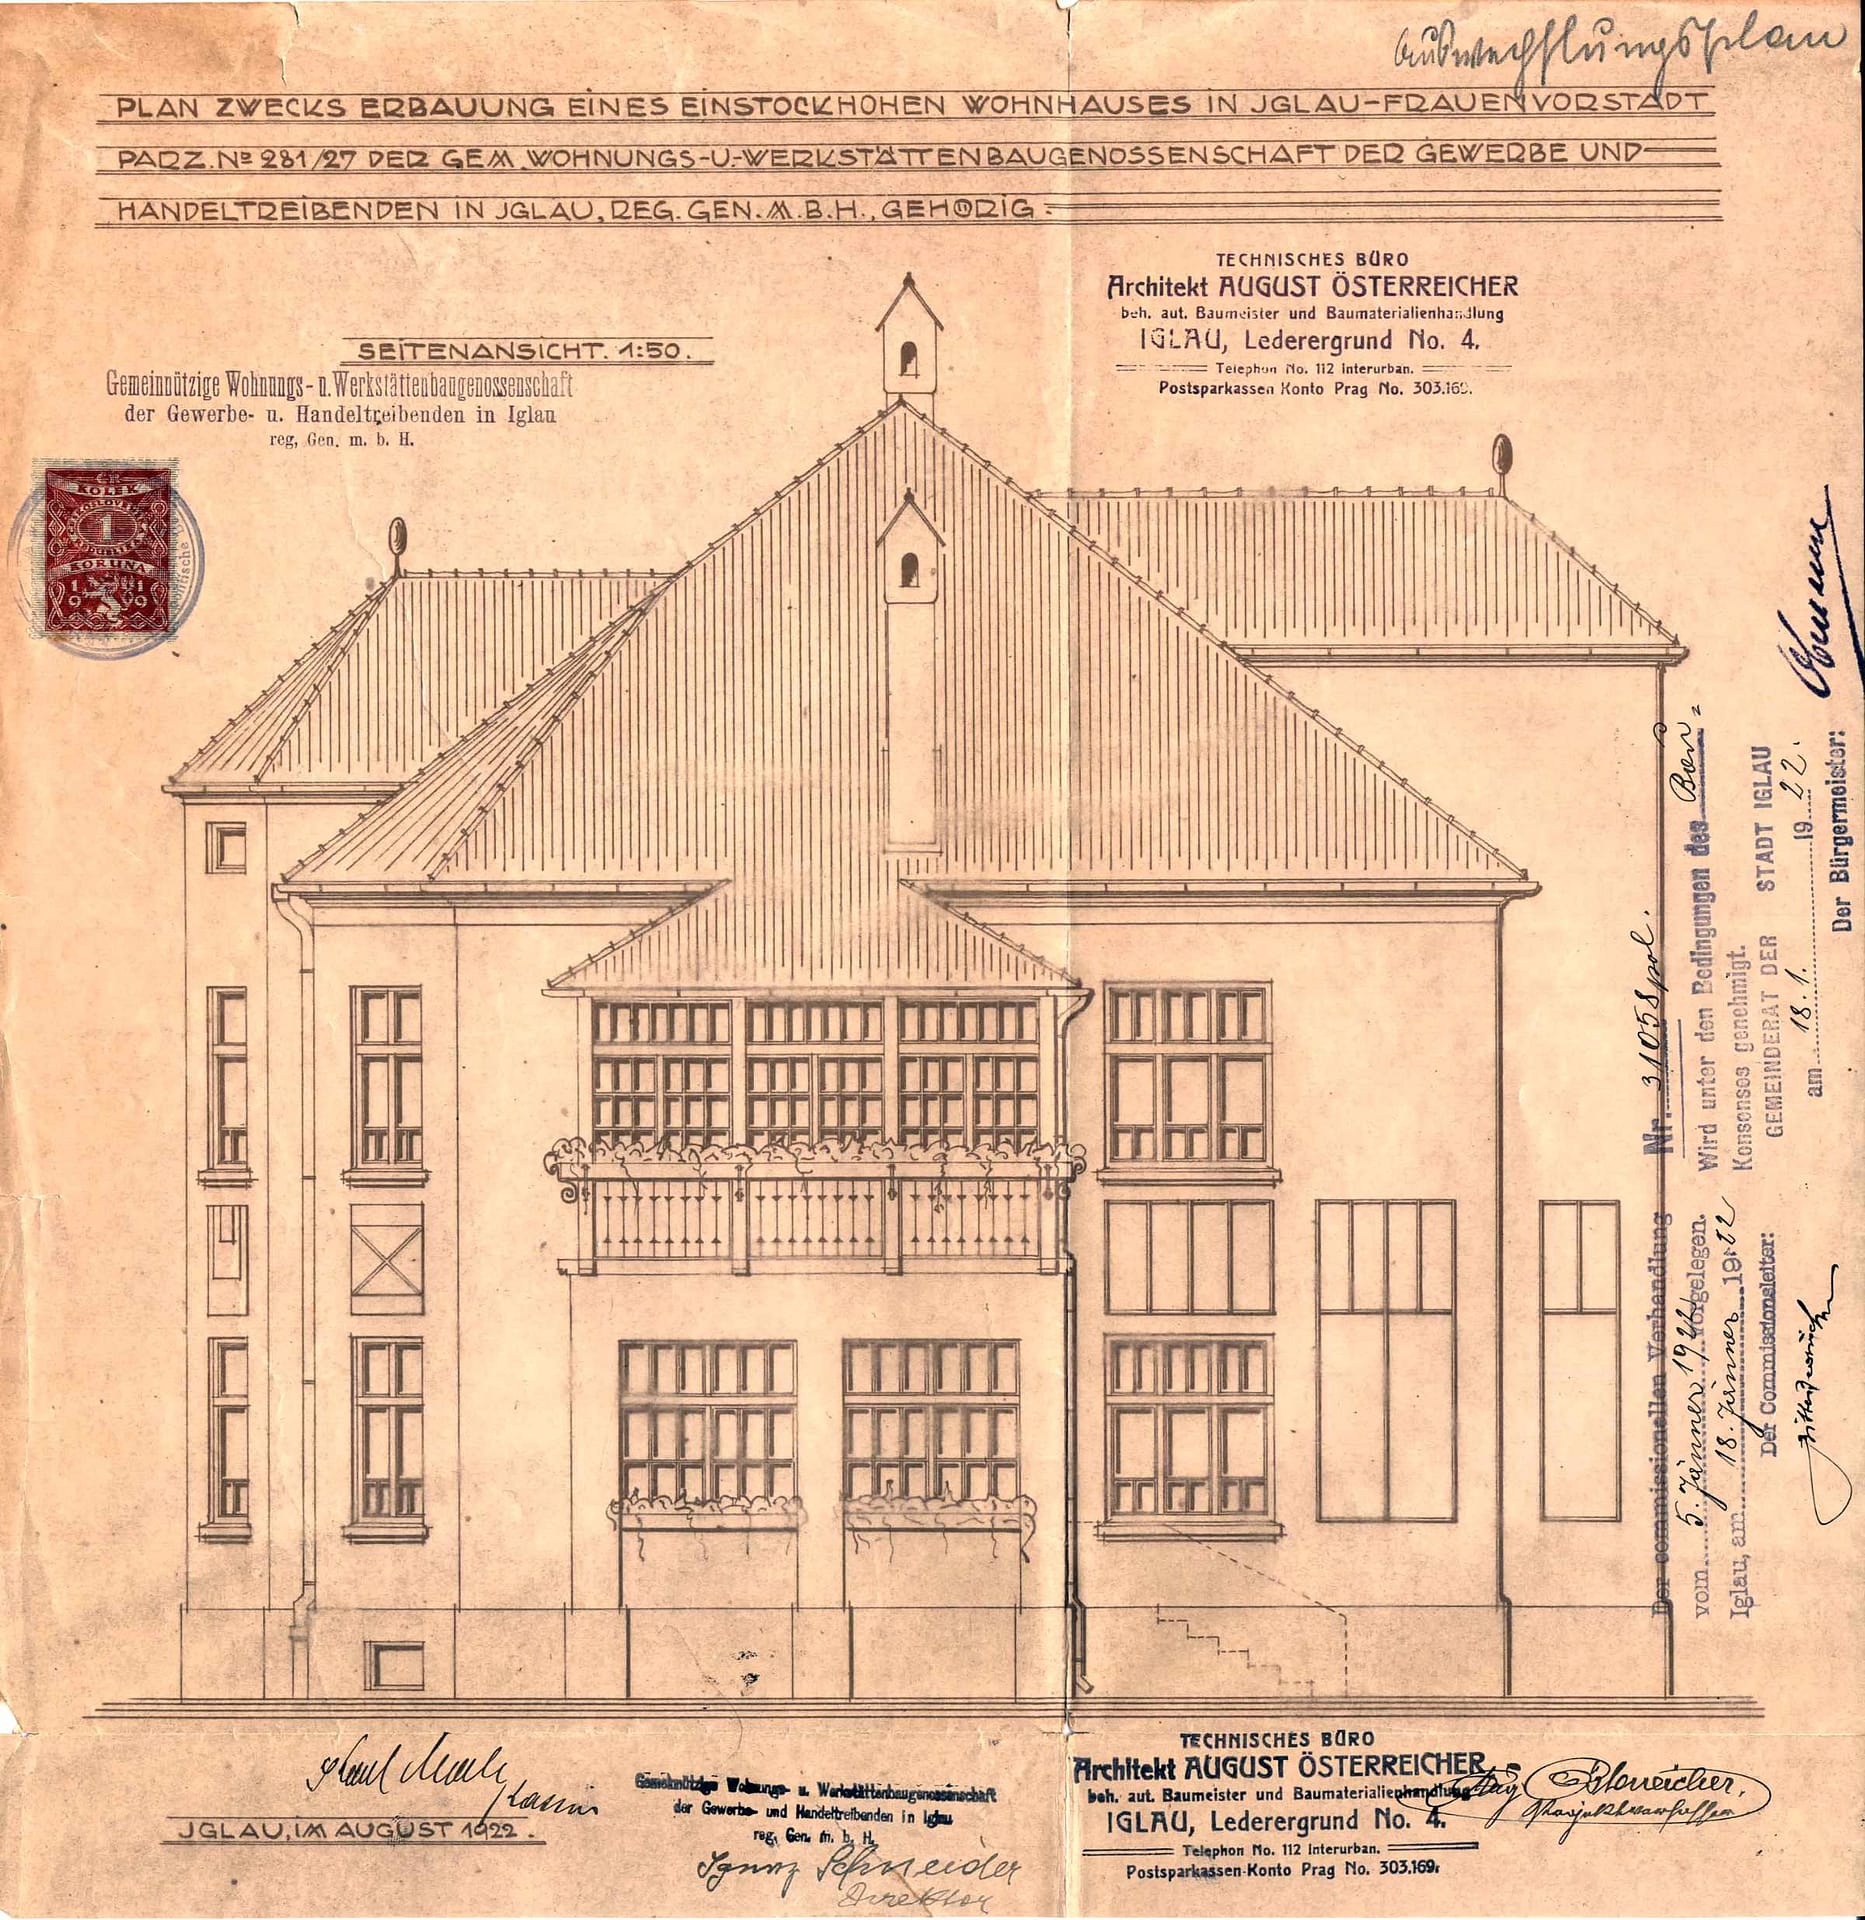 Auswechslungsplan
PLAN ZWECKS ERBAUUNG EINES EINSTOCKHOHEN WOHNHAUSES IN JGLAU-FRAUENVORSTADT
PARZ. Nº 281/27 DER GEM. WOHNUNGS-U.-WERKSTÄTTENBAUGENOSSENSCHAFT DER GEWERBE UND
HANDELTREIBENDEN IN JGLAU, REG. GEN. M. B. H., GEHÖRIG.
TECHNISCHES BÜRO
Architekt AUGUST ÖSTERREICHER
beh. aut. Baumeister und Baumaterialienhandlung
IGLAU, Lederergrund No. 4.
Telephon No. 112 interurban.
Postsparkassen Konto Prag No. 303.169.
SEITENANSICHT. 1:50.
Gemeinnützige Wohnungs- u. Werkstättenbaugenossenschaft
der Gewerbe- u. Handeltreibenden in Iglau
reg, Gen. m. b. H.
KOLEK
1
KORUNA
1919
Der commissionellen Verhandlung Nr. 31058 pol.
vom 5. Jänner 1922 vorgelegen.
Iglau, am 18. Jänner 1922
Der Commissionsleiter:
Wird unter den Bedingungen des Bau-
Konsenses genehmigt.
GEMEINDERAT DER STADT IGLAU
am 18. 1. 1922.
Der Bürgermeister:
JGLAU, IM AUGUST 1922.
Karl
Gemeinnützige Wohnungs- u. Werkstättenbaugenossenschaft
der Gewerbe- und Handeltreibenden in Iglau
reg, Gen. m. b. H.
Ignaz Schneider
Direktor
TECHNISCHES BÜRO
Architekt AUGUST ÖSTERREICHER
beh. aut. Baumeister und Baumaterialienhandlung
IGLAU, Lederergrund No. 4.
Telephon No. 112 interurban.
Postsparkassen-Konto Prag No. 303.169.
Aug. Österreicher.